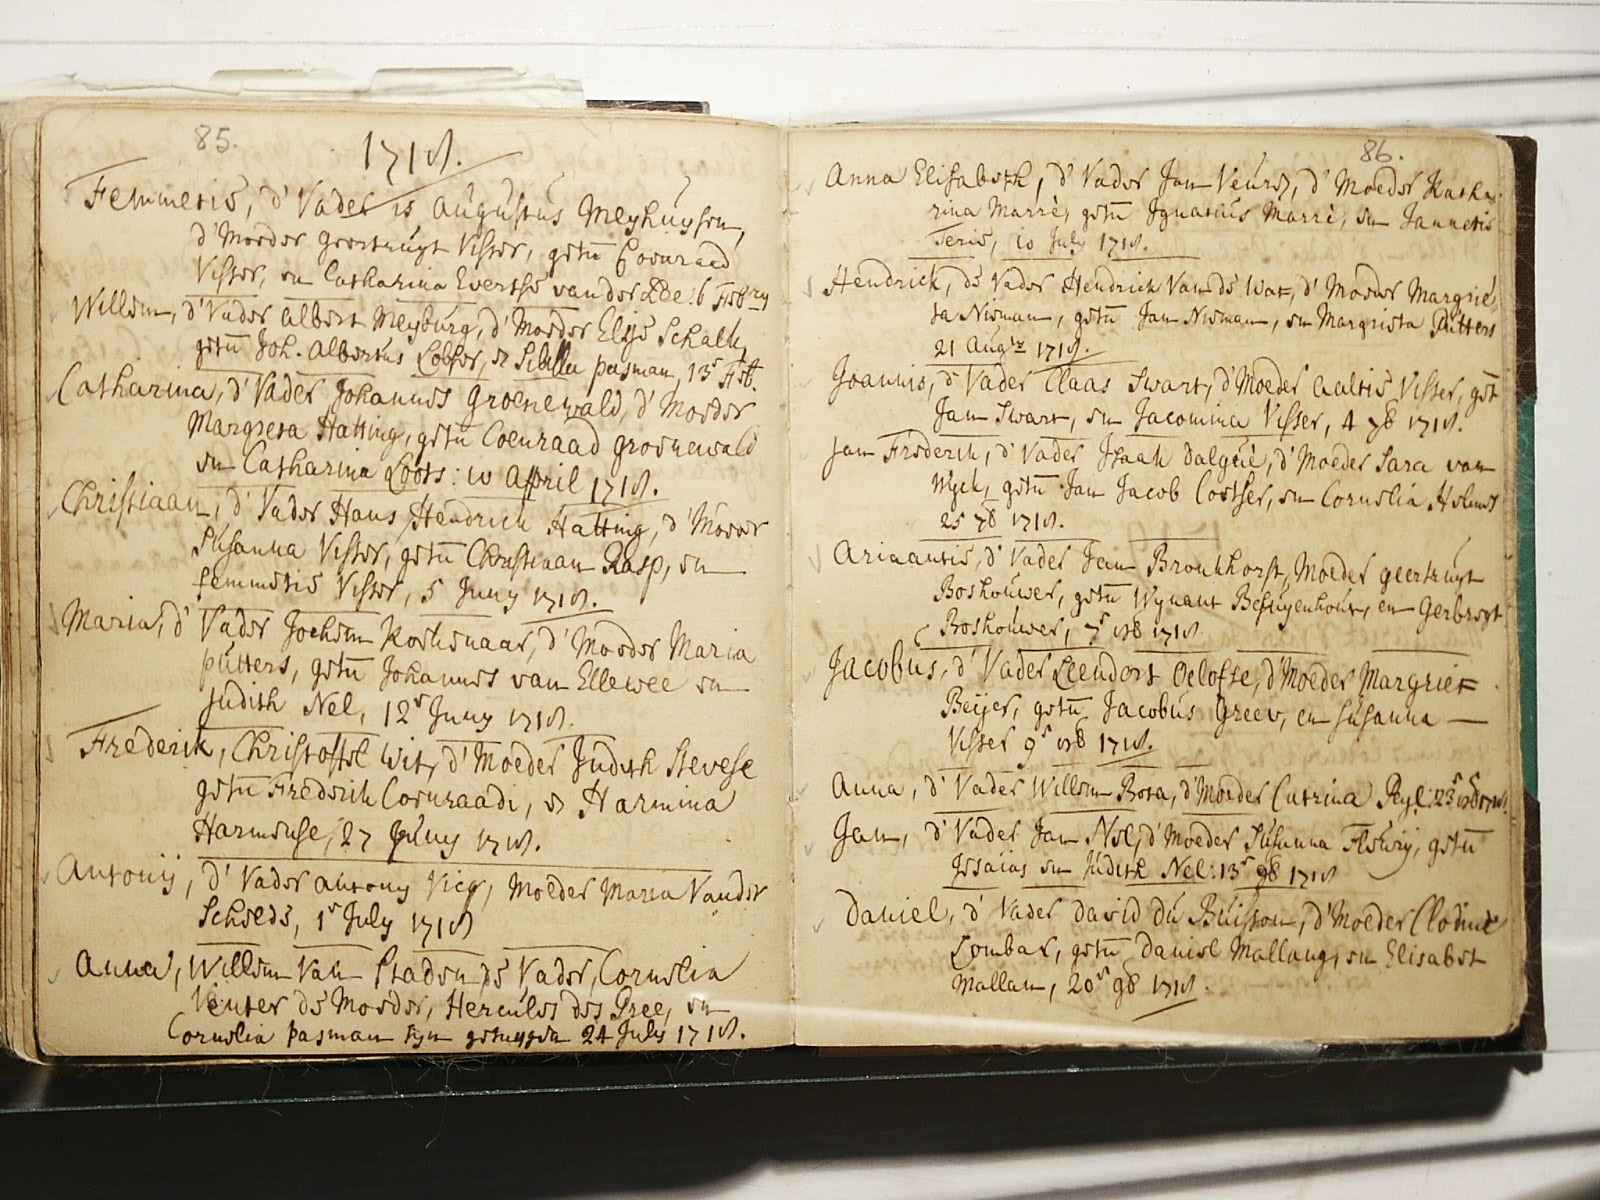 85.
1718.
Femmetie, d' Vader is Augustus Meyhuysen,
d'Moeder Geertruyt Visser, getū Coenraad
Visser, en Catharina Evertse van der Lde: 6 Febry
Willem, d'Vader Albert Meyburg, d'Moeder Elsje Schalk,
getū Joh. Albertus Lobser, & Sibilla pasman, 13e Feb.
Catharina, d'Vader Johannes Groenewald, d'Moeder
Margreta Hatting, getū Coenraad groenewald
en Catharina Loots: 10 April 1718.
Christiaan, d'Vader Hans Hendrick Hatting, d'Moeder
Susanna Visser, getū Christiaan Rasp, en
femmetie Visser, 5 Juny 1718.
Maria, d' Vader Jochem Koekemaar, d'Moeder Maria
putters, getū Johannes van Ellewee en
Judith Nel, 12e Juny 1718.
Frederik, Christoffel Wit, d'Moeder Judith Stevese
getū Frederik Coenraadi, & Harmina
Harmense, 27 Juny 1718.
Antonij, d'Vader Antony Vicq, Moeder Maria Vander
Schelde, 1e July 1718
Anna, Willem Van Staden de Vader, Cornelia
Venter de Moeder, Hercules des Pree, en
Cornelia pasman syn getuygen 24 July 1718.
86.
Anna Elisabeth, d'Vader Jan Veurs, d'Moeder Katha-
rina Marrè, getū Ignatius Marrè, en Jannetie
Terie, 10 July 1718.
Hendrick, de Vader Hendrick Van de Wat, d'Moeder Margrie
ta Nieman, getū Jan Nieman, en Margrieta Putters
21 Aug 1718.
Joannis, d'Vader Claas Swart, d'Moeder Aaltie Visser, get
Jan Swart, en Jacomina Visser, 4 7b 1718.
Jan Frederik, d'Vader Isaak Dalgue, d'Moeder Sara van
Wyck, getū Jan Jacob Coetser, en Cornelia Helmes
25 7b 1718.
Ariaantie, d'Vader Jan Bronkhorst, Moeder geertruyt
Boshouwer, getū Wynant Besuyenhout, en Gerbregt
Boshouwer, 7e 1718
Jacobus, d'Vader Leendert Oelofse, d'Moeder Margriet
Beijer, getū Jacobus Greev, en Susanna
Visser 9e 1718.
Anna, d'Vader Willem Bota, d'Moeder Catrina Peyl: 23e
Jan, d'Vader Jan Nel, d'Moeder Susanna Fleury, getū
Jesaias en Judith Nel: 13e 9b 1718
Daniel, d'Vader David du Buisson, d'Moeder Clodine
Lombar, getū Daniel Mallang, en Elisabet
Mallan, 20e 9b 1718.